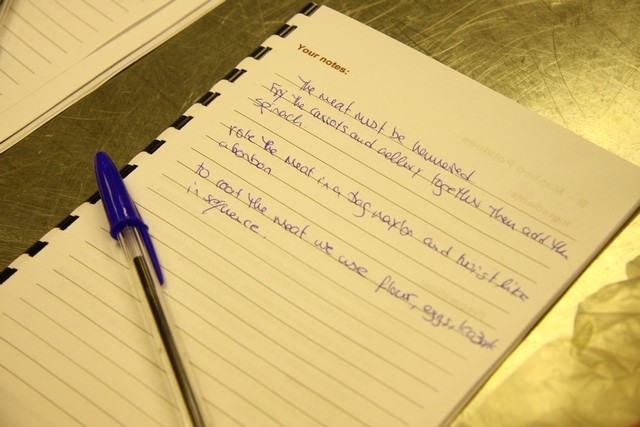 Your notes:
The meat must be hammered
Fry the carrots and cellery together then add the
spinach
role the meat in a bag maybe and twist like
a bonbon
to coat the meat we use flour, eggs,
in sequence.